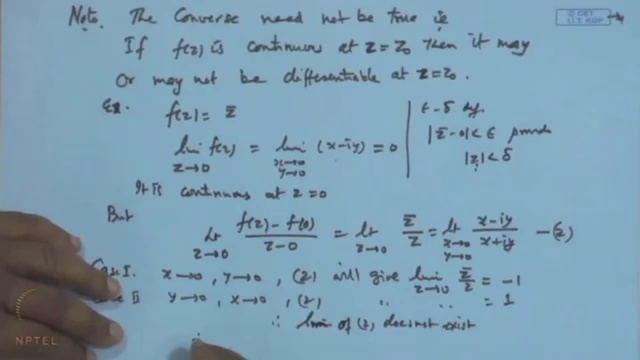 Note. The Converse need not be true ie
If f(z) is continuous at z=z₀ then it may
or may not be differentiable at z=z₀.
Ex. f(z) = z̄
lim z→0 f(z) = lim x→0 y→0 (x-iy) = 0
ε-δ def.
|z̄-0|<ε provided
|z|<δ
It is continuous at z=0
But lt z→0 f(z)-f(0)/z-0 = lt z→0 z̄/z = lt x→0 y→0 x-iy/x+iy —(2)
Case I. x→0, y→0, (2) will give lim z→0 z̄/z = -1
II y→0, x→0, (2) " " = 1
∴ limit of (2) does not exist
© CET
I.I.T. KGP
NPTEL